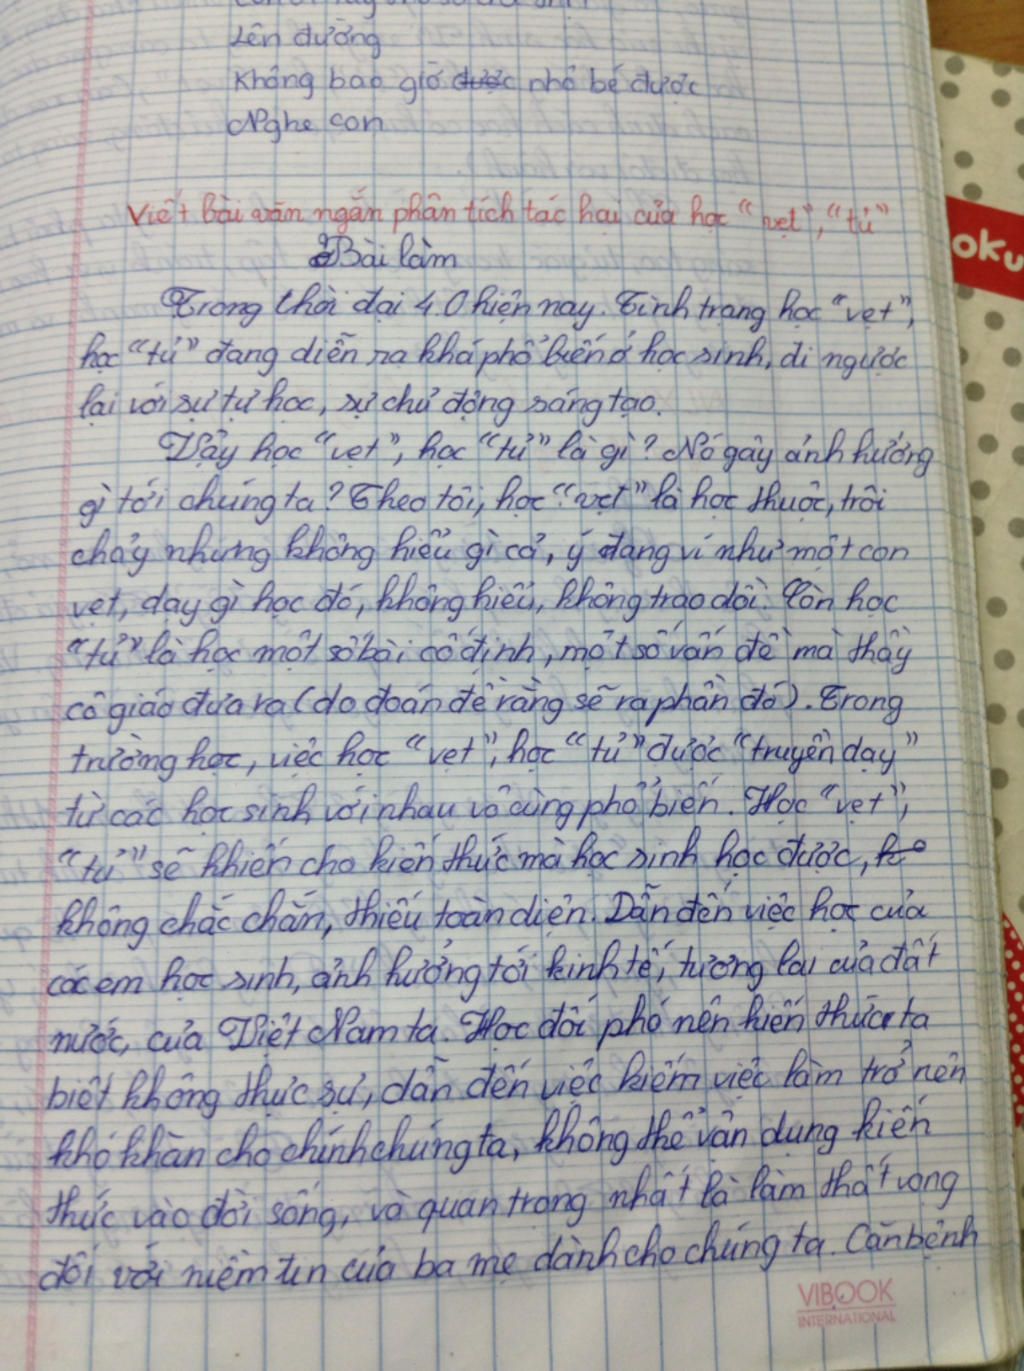 Lên đường
Không bao giờ được nhỏ bé được
Nghe con
Viết bài văn ngắn phân tích tác hại của học "vẹt", "tủ"
Bài làm
Trong thời đại 4.0 hiện nay. Tình trạng học "vẹt",
học "tủ" đang diễn ra khá phổ biến ở học sinh, đi ngược
lại với sự tự học, sự chủ động sáng tạo.
Vậy học "vẹt", học "tủ" là gì? Nó gây ảnh hưởng
gì tới chúng ta? Theo tôi, học "vẹt" là học thuộc, trôi
chảy nhưng không hiểu gì cả, ý đang ví như một con
vẹt, dạy gì học đó, không hiểu, không trao dồi. Còn học
"tủ" là học một số bài cố định, một số vấn đề mà thầy
cô giáo đưa ra (do đoán đề rằng sẽ ra phần đó). Trong
trường học, việc học "vẹt", học "tủ" được "truyền dạy"
từ các học sinh với nhau vô cùng phổ biến. Học "vẹt",
"tủ" sẽ khiến cho kiến thức mà học sinh học được,
không chắc chắn, thiếu toàn diện. Dẫn đến việc học của
các em học sinh, ảnh hưởng tới kinh tế, tương lai của đất
nước, của Việt Nam ta. Học đối phó nên kiến thức ta
biết không thực sự, dẫn đến việc kiếm việc làm trở nên
khó khăn cho chính chúng ta, không thể vận dụng kiến
thức vào đời sống, và quan trọng nhất là làm thất vọng
đối với niềm tin của ba mẹ dành cho chúng ta. Căn bệnh
VIBOOK
INTERNATIONAL
oku